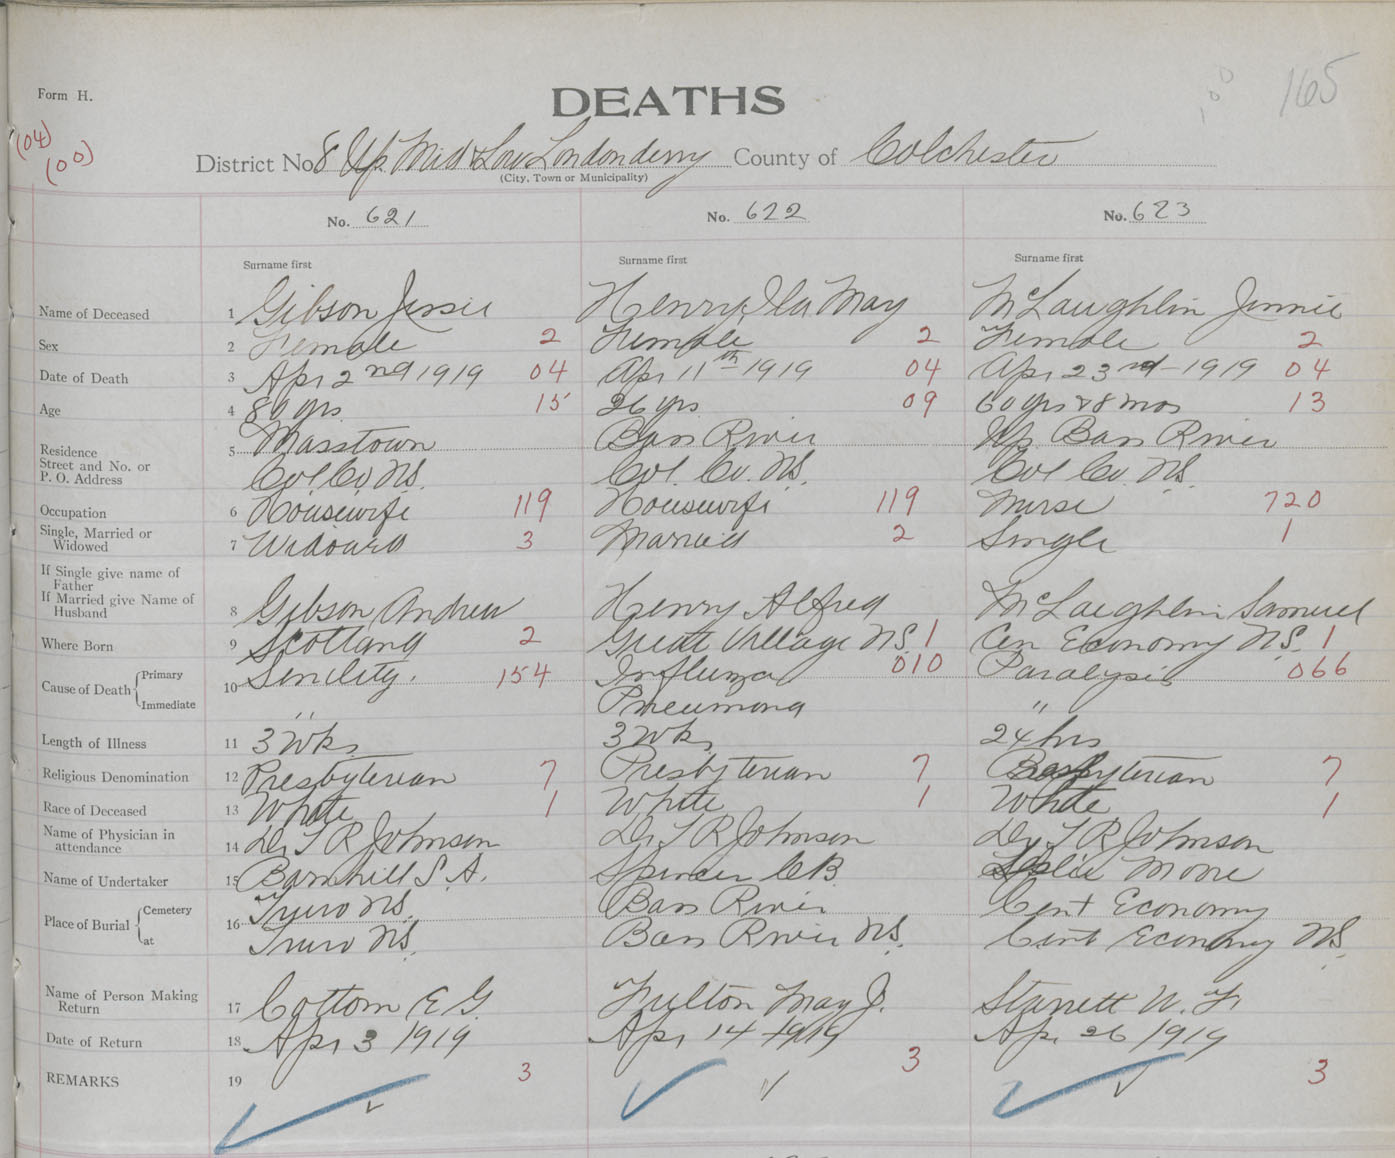 165
Form H.
DEATHS
(04)
(00)
District No 8 Up. Mid & Low Londonderry County of Colchester
(City, Town or Municipality)
No. 621 No. 622 No. 623
Surname first Surname first Surname first
Name of Deceased 1 Gibson Jessie Henry Ila May McLaughlin Jennie
Sex 2 Female 2 Female 2 Female 2
Date of Death 3 Apr 2nd 1919 04 Apr 11th 1919 04 Apr 23rd 1919 04
Age 4 89 yrs 15 26 yrs 09 60 yrs & 8 mos 13
Residence Street and No. or P. O. Address 5 Masstown Bass River Up. Bass River
Col. Co. N.S. Col. Co. N.S. Col Co. N.S.
Occupation 6 Housewife 119 Housewife 119 Nurse 720
Single, Married or Widowed 7 Widowed 3 Married 2 Single 1
If Single give name of Father
If Married give Name of Husband 8 Gibson Andrew Henry Alfred McLaughlin Samuel
Where Born 9 Scotland 2 Great Village N.S. 1 Cen Economy N.S. 1
Cause of Death { Primary 10 Senility. 154 Influenza 010 Paralysis 066
Immediate " Pneumonia "
Length of Illness 11 3 wks 3 wks 24 hrs
Religious Denomination 12 Presbyterian 7 Presbyterian 7 Presbyterian 7
Race of Deceased 13 White 1 White 1 White 1
Name of Physician in attendance 14 Dr T R Johnson Dr T R Johnson Dr T R Johnson
Name of Undertaker 15 Barnhill S. A. Spencer C B. Leslie Moore
Place of Burial { Cemetery 16 Truro N.S. Bass River Cent Economy
at Truro N.S. Bass River N.S. Cent Economy N.S.
Name of Person Making Return 17 Cottom E G. Fulton May J. Starrett W. F.
Date of Return 18 Apr 3 1919 Apr 14 1919 Apr 26 1919
REMARKS 19 3 3 3